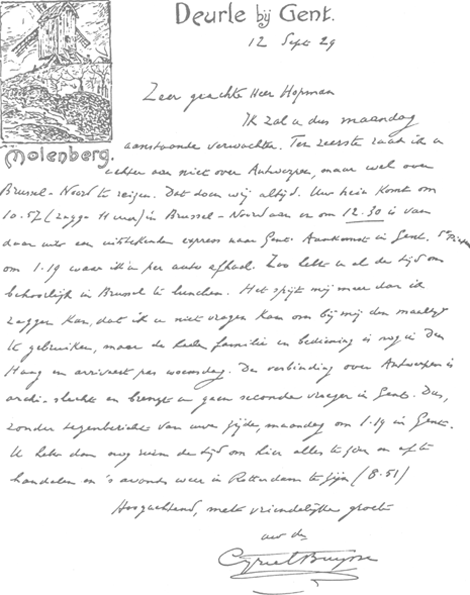 Deurle bij Gent.
12 Sept 29
Molenberg.
Zeer geachte Heer Hopman
Ik zal u dus maandag
aanstaande verwachten. Ten zeerste raad ik u
echter aan niet over Antwerpen, maar wel over
Brussel-Noord te reizen. Dat doen wij altijd. Uw trein komt om
10.57 (zegge 11 uur) in Brussel-Noord aan en om 12.30 is van
daar uit een uitstekenden express naar Gent. Aankomst in Gent, St Pieter
om 1.19 waar ik u per auto afhaal. Zoo hebt u al de tijd om
behoorlijk in Brussel te lunchen. Het spijt mij meer dan ik
zeggen kan, dat ik u niet vragen kan om bij mij den maaltijd
te gebruiken, maar de heele familie en bediening is nog in Den
Haag en arriveert pas woensdag. De verbinding over Antwerpen is
archi-slecht en brengt u geen seconde vroeger in Gent. Dus,
zonder tegenbericht van uwe zijde, maandag om 1.19 in Gent.
U hebt dan nog ruim de tijd om hier alles te zien en af te
handelen en 's avonds weer in Rotterdam te zijn (8.51)
Hoogachtend, met vriendelijke groet
uw dw
Cyriel Buysse